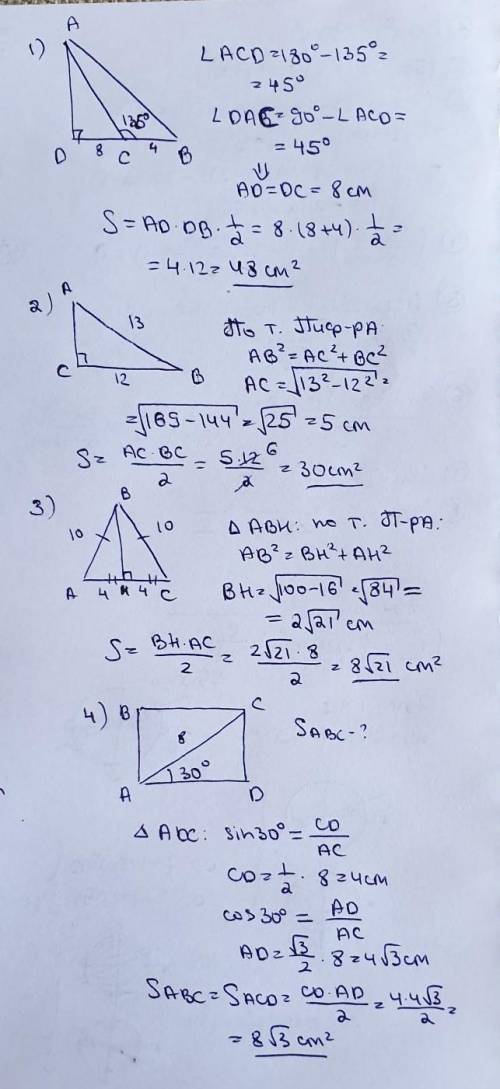 1) A
D 8 C 4 B
135°
∠ACD=180°-135°=
=45°
∠DAC=90°-∠ACD=
=45°
⇓
AD=DC=8cm
S=AD·DB·1/2=8·(8+4)·1/2=
=4·12=48cm²
2) A
13
C 12 B
По т. Пиф-ра:
AB²=AC²+BC²
AC=√13²-12²=
=√169-144=√25=5cm
S=AC·BC/2=5·12/2 6=30cm²
3) B
10 10
A 4 H 4 C
△ABH: по т. П-ра:
AB²=BH²+AH²
BH=√100-16=√84=
=2√21 cm
S=BH·AC/2=2√21·8/2=8√21 cm²
4) B C
8
30°
A D
S ABC-?
△ADC: sin30°=CD/AC
CD=1/2·8=4cm
cos30°=AD/AC
AD=√3/2·8=4√3cm
S ABC=S ACD=CD·AD/2=4·4√3/2=
=8√3 cm²